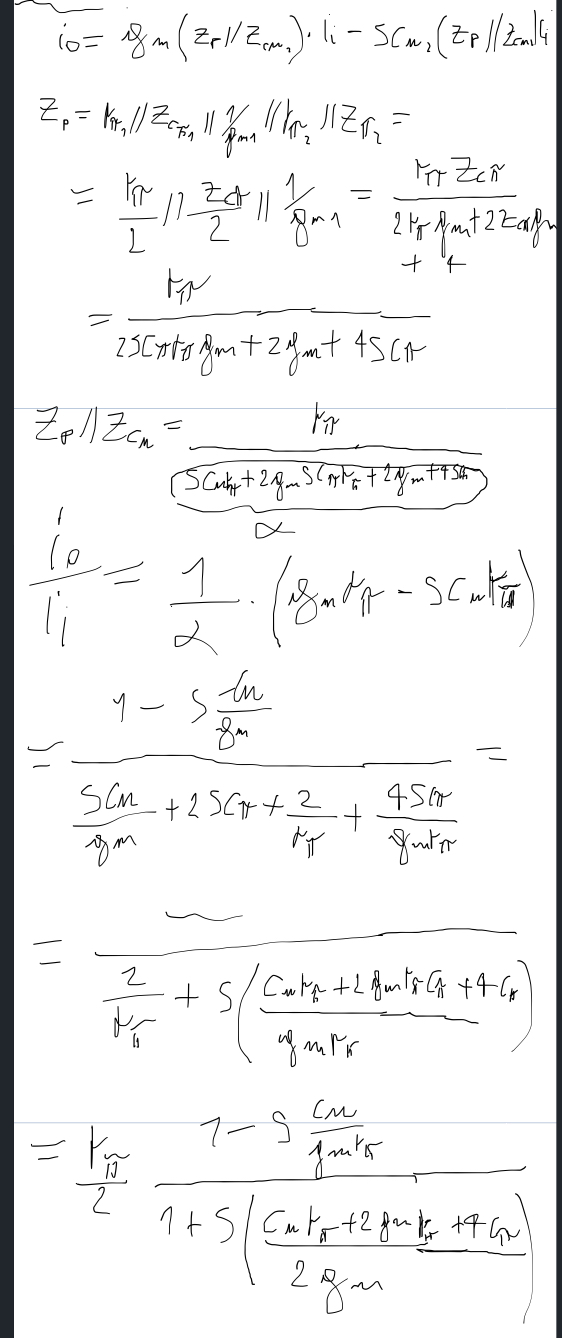 i₀ = gm (Zp//Zcμ₂)·Ii − SCμ₂ (Zp//Zcμ) Ii
Zp = rπ₁ // Zcπ₁ // 1/gm₁ // rπ₂ // Zπ₂ =
= rπ/2 // Zcπ/2 // 1/gm₁ = rπ Zcπ / (2rπ gm + 2Zcπ gm + 4
= rπ / (2SCπ rπ gm + 2gm + 4SCπ)
Zp // Zcμ = rπ / (SCμrπ + 2gm SCπrπ + 2gm + 4SCπ)
α
i₀/Ii = 1/α · (gm rπ − SCμ rπ)
= (1 − S Cμ/gm) / (SCμ/gm + 2SCπ + 2/rπ + 4SCπ/(gm rπ)) =
= ~ / (2/rπ + S((Cμ rπ + 2gm rπ Cπ + 4Cπ)/(gm rπ)))
= rπ/2 (1 − S Cμ/(gm rπ)) / (1 + S((Cμ rπ + 2gm rπ + 4Cπ)/(2gm)))